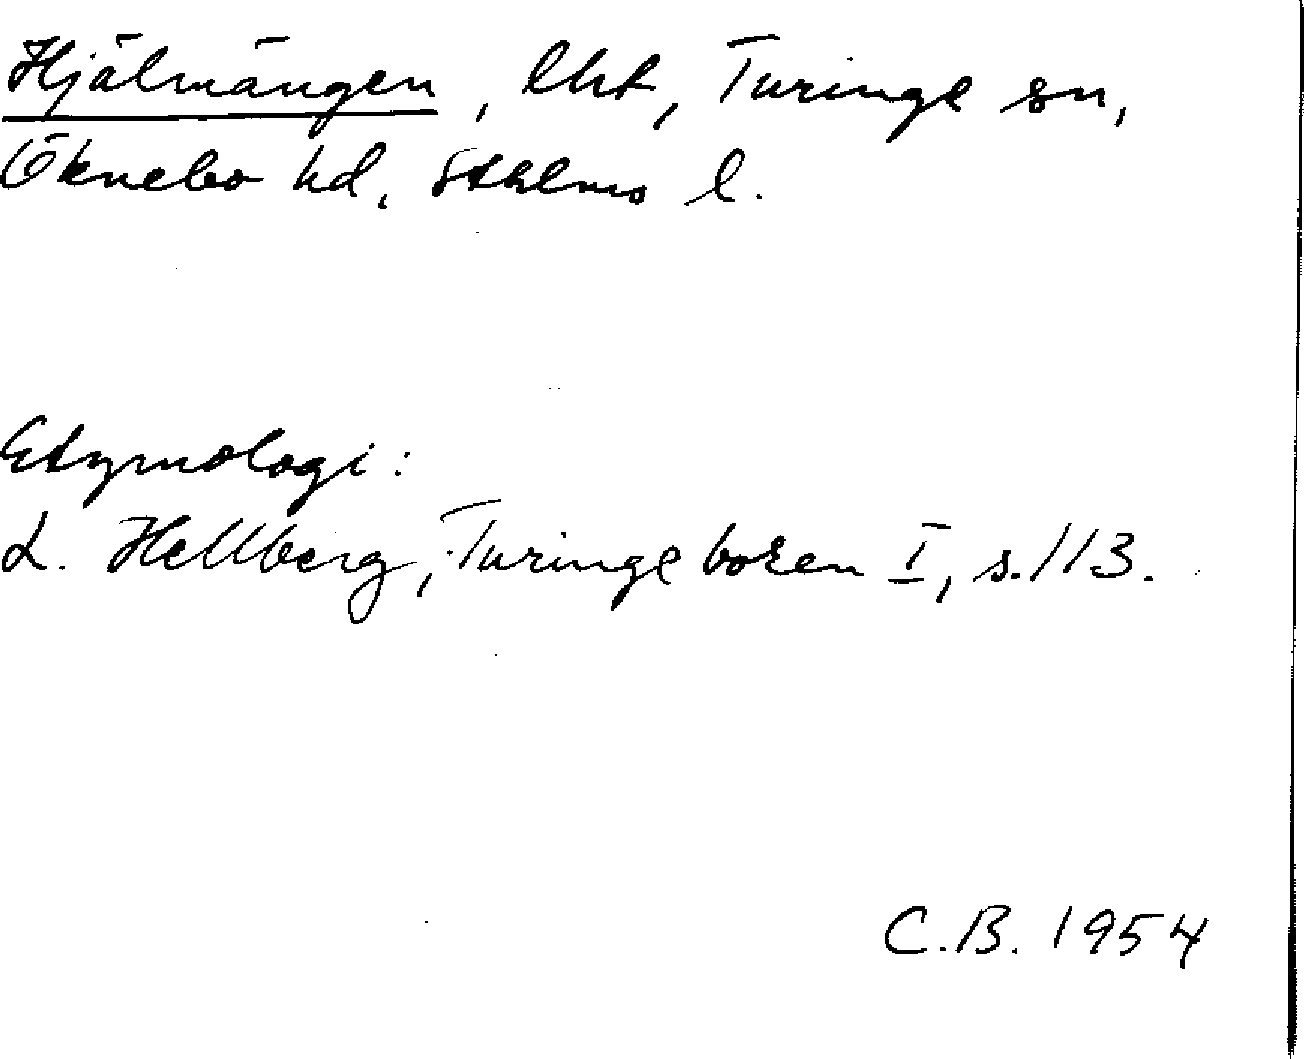 Hjälmängen, lht, Turinge sn,
Öknebo hd, Sthlms l.
Etymologi:
L. Hellberg, Turingeboken I, s. 113.
C.B. 1954